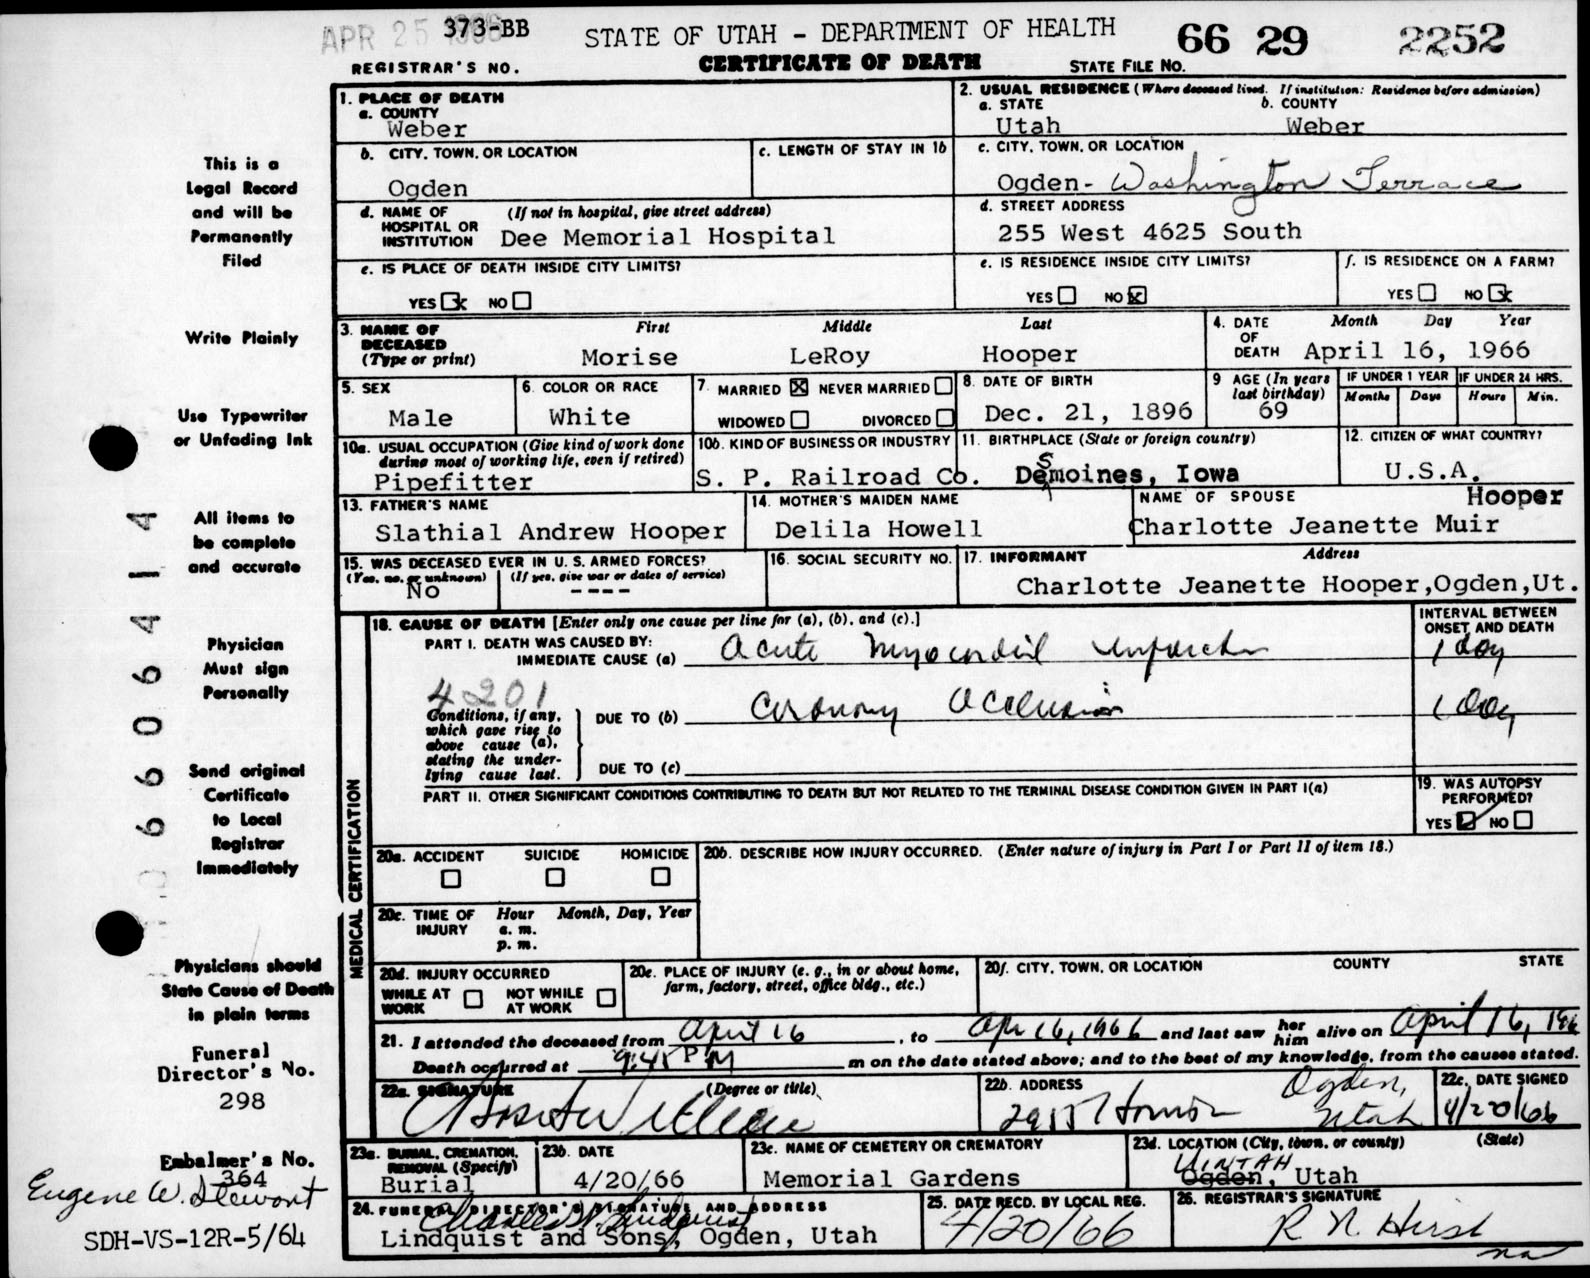 APR 25 1966 373-BB STATE OF UTAH - DEPARTMENT OF HEALTH 66 29 2252
REGISTRAR'S NO. CERTIFICATE OF DEATH STATE FILE NO.
1. PLACE OF DEATH
a. COUNTY
Weber
2. USUAL RESIDENCE (Where deceased lived. If institution: Residence before admission)
a. STATE b. COUNTY
Utah Weber
b. CITY, TOWN, OR LOCATION
Ogden
c. LENGTH OF STAY IN 1b
c. CITY, TOWN, OR LOCATION
Ogden- Washington Terrace
d. NAME OF HOSPITAL OR INSTITUTION (If not in hospital, give street address)
Dee Memorial Hospital
d. STREET ADDRESS
255 West 4625 South
e. IS PLACE OF DEATH INSIDE CITY LIMITS?
YES x NO
e. IS RESIDENCE INSIDE CITY LIMITS?
YES NO x
f. IS RESIDENCE ON A FARM?
YES NO x
3. NAME OF DECEASED (Type or print)
First Middle Last
Morise LeRoy Hooper
4. DATE OF DEATH
Month Day Year
April 16, 1966
5. SEX
Male
6. COLOR OR RACE
White
7. MARRIED x NEVER MARRIED
WIDOWED DIVORCED
8. DATE OF BIRTH
Dec. 21, 1896
9 AGE (In years last birthday)
69
IF UNDER 1 YEAR
Months Days
IF UNDER 24 HRS.
Hours Min.
10a. USUAL OCCUPATION (Give kind of work done during most of working life, even if retired)
Pipefitter
10b. KIND OF BUSINESS OR INDUSTRY
S. P. Railroad Co.
11. BIRTHPLACE (State or foreign country)
DeSmoines, Iowa
12. CITIZEN OF WHAT COUNTRY?
U.S.A.
13. FATHER'S NAME
Slathial Andrew Hooper
14. MOTHER'S MAIDEN NAME
Delila Howell
NAME OF SPOUSE Hooper
Charlotte Jeanette Muir
15. WAS DECEASED EVER IN U. S. ARMED FORCES?
(Yes, no, or unknown) (If yes, give war or dates of service)
No ----
16. SOCIAL SECURITY NO.
17. INFORMANT Address
Charlotte Jeanette Hooper,Ogden,Ut.
18. CAUSE OF DEATH [Enter only one cause per line for (a), (b), and (c).]
INTERVAL BETWEEN ONSET AND DEATH
PART I. DEATH WAS CAUSED BY:
IMMEDIATE CAUSE (a) Acute myocardial infarction 1 day
4201
Conditions, if any, which gave rise to above cause (a), stating the underlying cause last.
DUE TO (b) Coronary Occlusion 1 day
DUE TO (c)
PART II. OTHER SIGNIFICANT CONDITIONS CONTRIBUTING TO DEATH BUT NOT RELATED TO THE TERMINAL DISEASE CONDITION GIVEN IN PART I(a)
19. WAS AUTOPSY PERFORMED?
YES ✓ NO
MEDICAL CERTIFICATION
20a. ACCIDENT SUICIDE HOMICIDE
20b. DESCRIBE HOW INJURY OCCURRED. (Enter nature of injury in Part I or Part II of item 18.)
20c. TIME OF INJURY
Hour Month, Day, Year
a. m.
p. m.
20d. INJURY OCCURRED
WHILE AT WORK NOT WHILE AT WORK
20e. PLACE OF INJURY (e. g., in or about home, farm, factory, street, office bldg., etc.)
20f. CITY, TOWN, OR LOCATION COUNTY STATE
21. I attended the deceased from April 16, to Apr 16, 1966 and last saw her him alive on April 16, 196
Death occurred at 9:45 P M m on the date stated above; and to the best of my knowledge, from the causes stated.
22a. SIGNATURE (Degree or title)
22b. ADDRESS
Ogden, Utah
22c. DATE SIGNED
4/20/66
23a. BURIAL, CREMATION, REMOVAL (Specify)
Burial
23b. DATE
4/20/66
23c. NAME OF CEMETERY OR CREMATORY
Memorial Gardens
23d. LOCATION (City, town, or county) (State)
UINTAH
Ogden, Utah
24. FUNERAL DIRECTOR'S SIGNATURE AND ADDRESS
Charles W. Lindquist
Lindquist and Sons, Ogden, Utah
25. DATE RECD. BY LOCAL REG.
4/20/66
26. REGISTRAR'S SIGNATURE
R N Hirst
na
This is a
Legal Record
and will be
Permanently
Filed
Write Plainly
Use Typewriter
or Unfading Ink
All items to
be complete
and accurate
Physician
Must sign
Personally
Send original
Certificate
to Local
Registrar
Immediately
Physicians should
State Cause of Death
in plain terms
Funeral
Director's No.
298
Embalmer's No.
364
Eugene W. Stewart
SDH-VS-12R-5/64
6606414